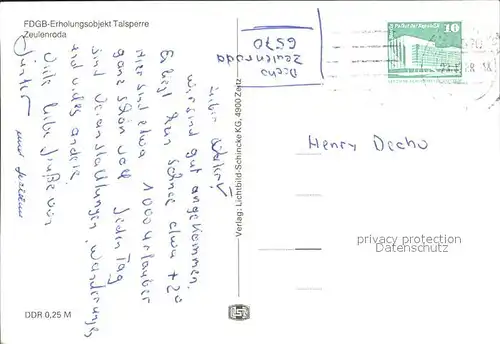 FDGB-Erholungsobjekt Talsperre
Zeulenroda
Decho
Zeulenroda
6570
wir sind gut angekommen.
Es liegt kein Schnee etwa + 2°
Hier sind etwa 1000 Urlauber
ganz schön voll. Jeden Tag
sind Veranstaltungen, Wanderungen
und vieles andere.
Viele liebe Grüße von
Günter und
DDR 0,25 M
Verlag: Lichtbild-Schincke KG, 4900 Zeitz
Palast der Republik
10
DDR
Henry Decho
privacy protection
Datenschutz